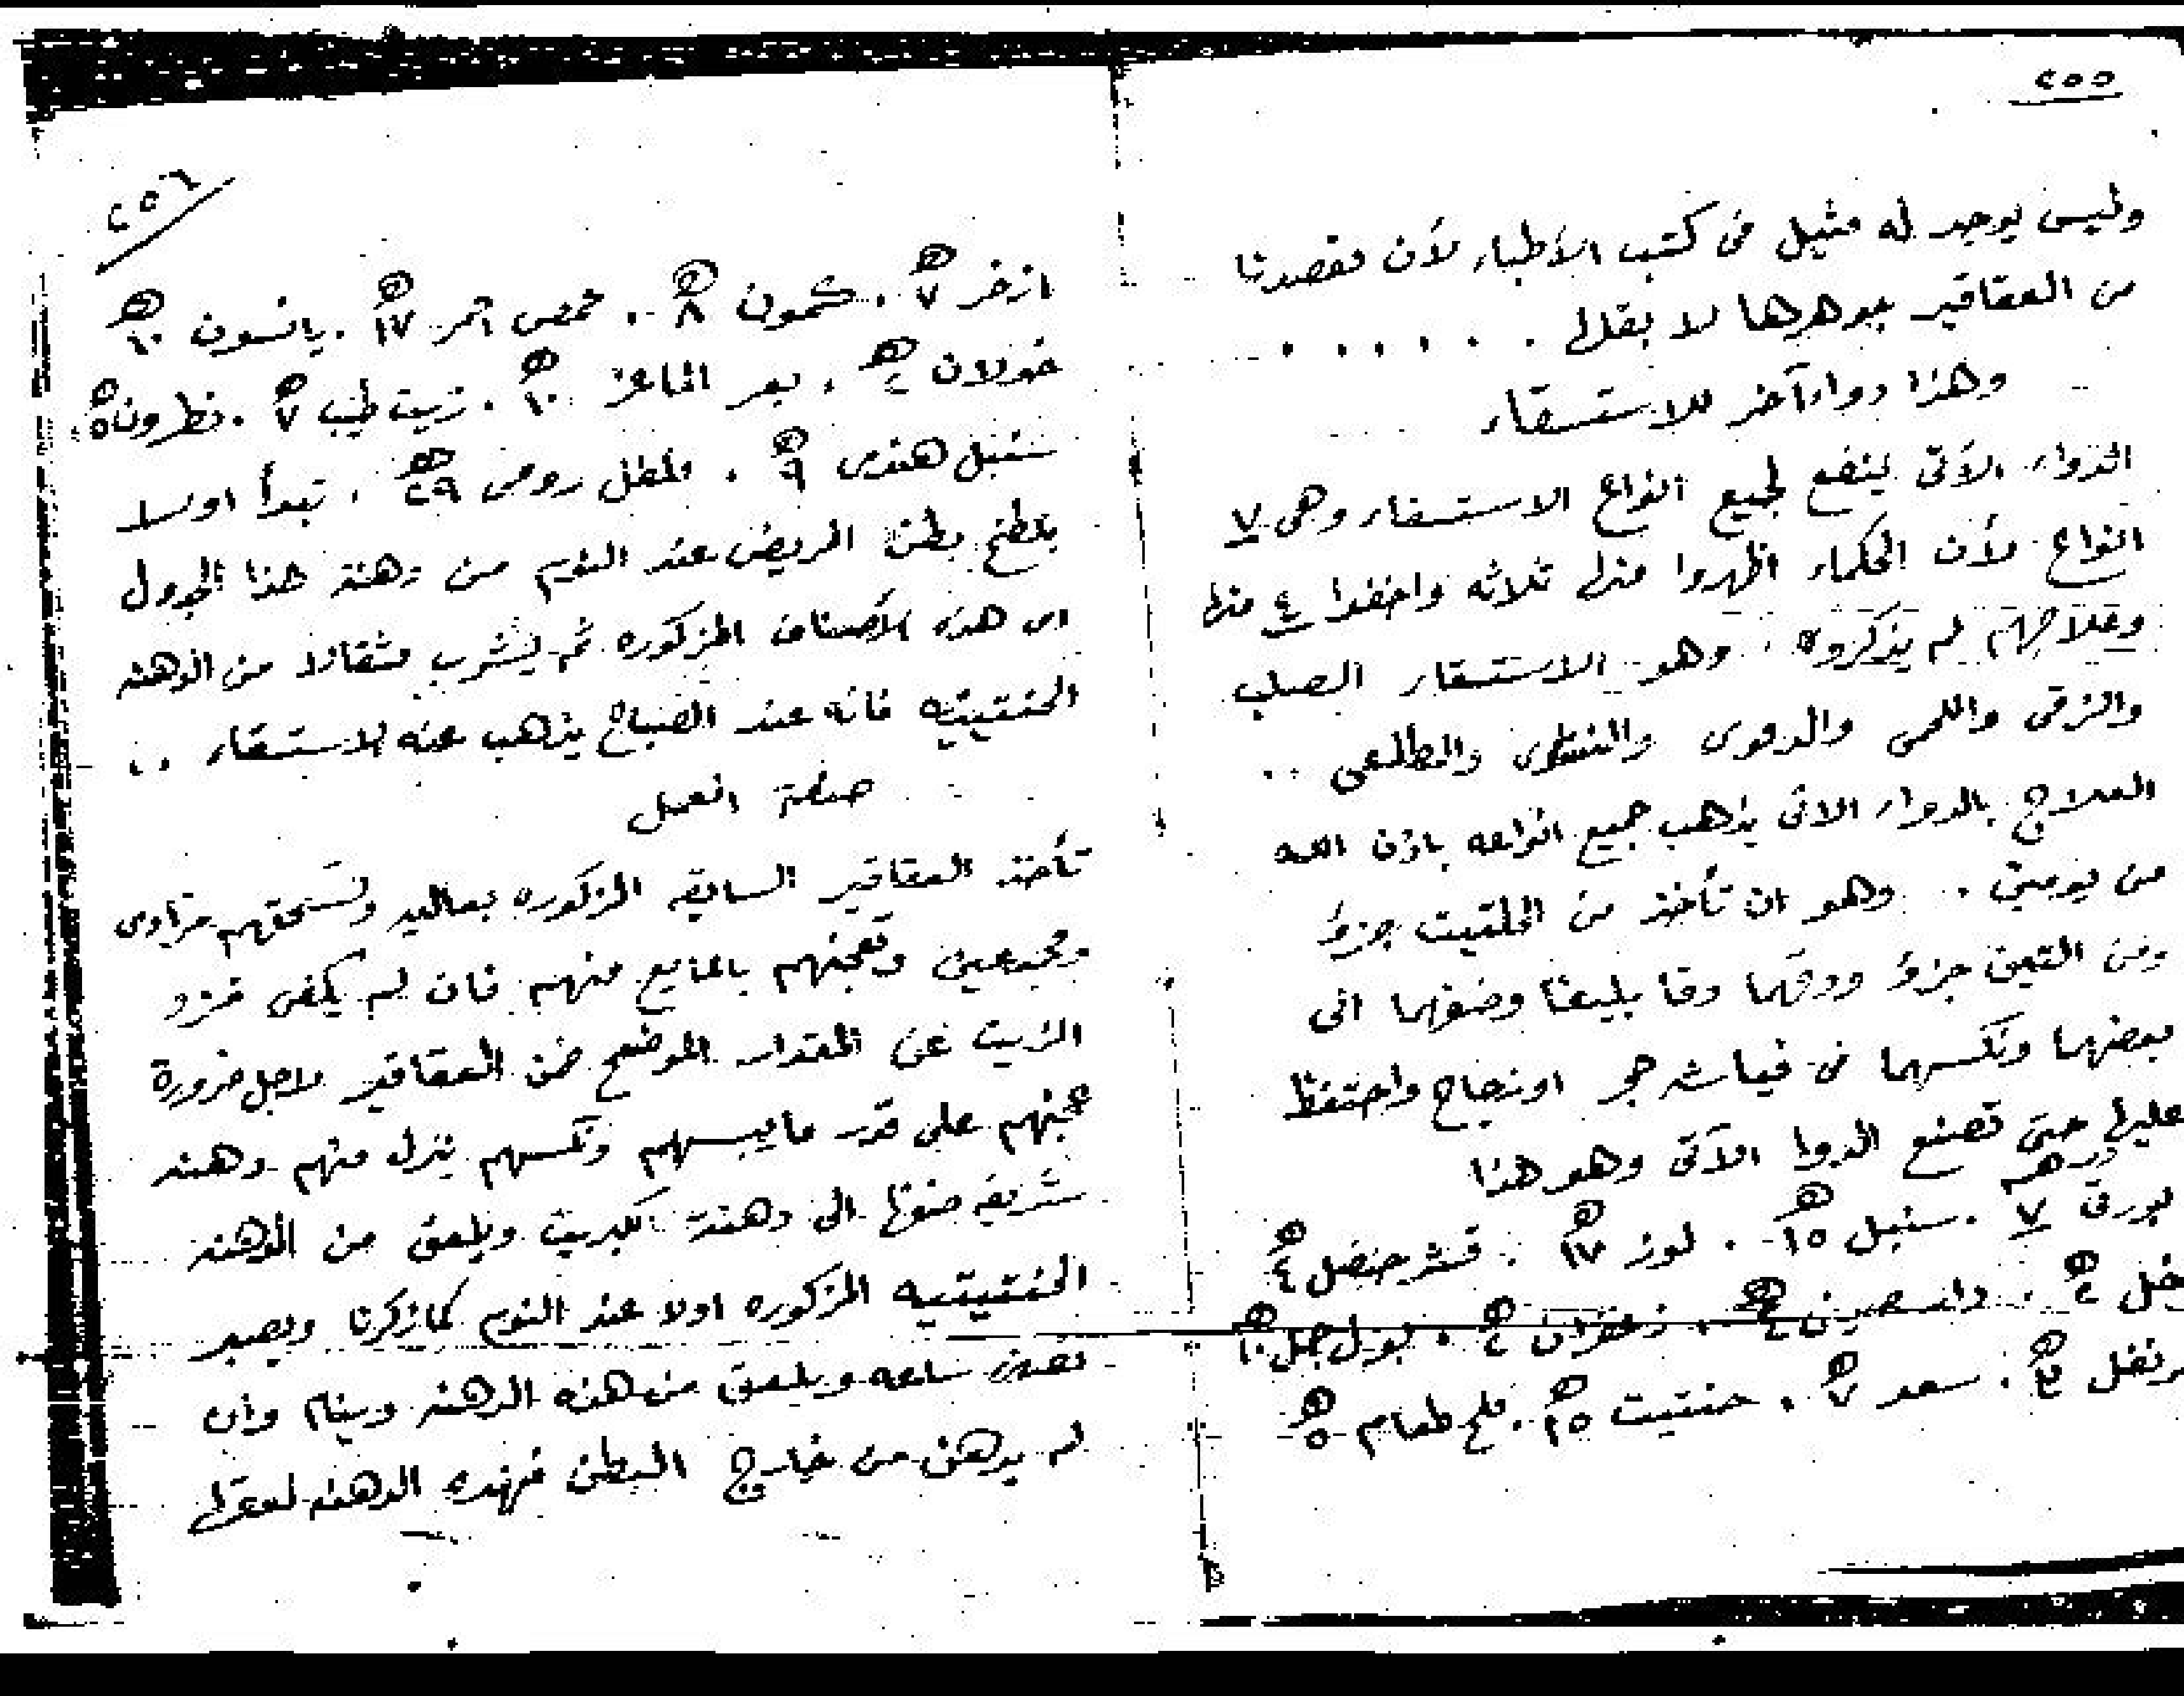 ٢٥٥
وليس يوجد له مثيل فى كتب الأطباء لأن مقصدنا
من العقاقير بجوهرها لا بثقلها . . . . . .
وهذا دواء آخر للاستسقاء
الدواء الآتى ينفع لجميع انواع الاستسقاء وهى ٧
انواع لأن الحكماء اظهروا منها ثلاثه واخفوا ٤ منها
وعلاجهم لم يذكروه . وهو الاستسقاء الصلب
والزقى واللحمى والدموى والطلعى ..
العلاج بالدواء الاتى يذهب جميع انواعه باذن الله
من يومين . وهو ان تأخذ من الحلتيت جزؤ
ومن التين جزؤ ودقهما دقا بليغا وضفهما الى
بعضهما ونكسهما فى فياشه حجر او زجاج واحتفظ
عليها حتى تصنع الدوا الآتى وهو هذا
بورق ٧ درهم . سنبل ١٥ . لوز ١٧ . قشر حنضل ٤
خل ٤ . دارسين ٤ . زعفران ٤ . بول جمل ١٠
قرنفل . سعد ٧ . حنتيت ١٥ . ملح طعام ٥
٢٥٦
ازخر ٧ . كمون ٨ . حمص احمر ١٧ . يانسون ١٠
خولان ٤ . بعر الماعز ١٠ . زيت طيب ٧ . نطرون ٥
سنبل هندى ٩ . فلفل رومى ٢٩ . تبدأ اولا
بلطخ بطن المريض عند النوم من دهنة هذا الجدول
اى هذه الاصناف المزكوره ثم يشرب مثقالا من الدهنه
الحنتيتيه فانه عند الصباح يذهب عنه الاستسقاء ..
صفة العمل
تأخذ العقاقير السابقه المزكوره بعاليه وتسحقهم فرادى
ومجمعين وتعجنهم بالمايع منهم فان لم يكفى فزد
الزيت عن المقدار الموضح ضمن العقاقير لاجل ضرورة
عجنهم على قدر ما يبسهم ونكسهم ينزل منهم دهنه
شريفه ضفها الى دهنة الكبريت ويلعق من الدهنه
الحنتيتيه المزكوره اولا عند النوم كما زكرنا ويصبر
نصف ساعه ويلعق من هذه الدهنه وينام وان
لم يدهن من خارج البطن فهذه الدهنه